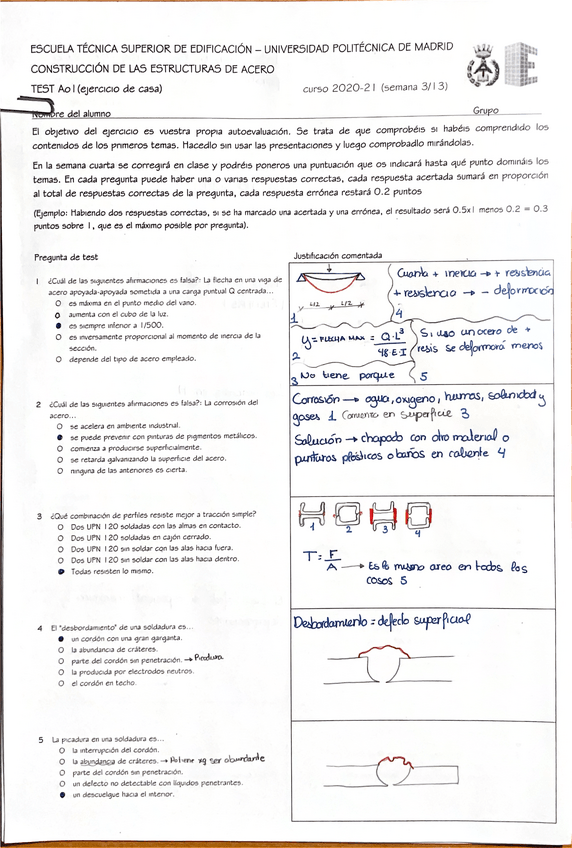 ESCUELA TÉCNICA SUPERIOR DE EDIFICACIÓN – UNIVERSIDAD POLITÉCNICA DE MADRID
CONSTRUCCIÓN DE LAS ESTRUCTURAS DE ACERO
TEST Ao1(ejercicio de casa) curso 2020-21 (semana 3/13)
Nombre del alumno Grupo
El objetivo del ejercicio es vuestra propia autoevaluación. Se trata de que comprobéis si habéis comprendido los
contenidos de los primeros temas. Hacedlo sin usar las presentaciones y luego comprobadlo mirándolas.
En la semana cuarta se corregirá en clase y podréis poneros una puntuación que os indicará hasta qué punto domináis los
temas. En cada pregunta puede haber una o varias respuestas correctas, cada respuesta acertada sumará en proporción
al total de respuestas correctas de la pregunta, cada respuesta errónea restará 0.2 puntos
(Ejemplo: Habiendo dos respuestas correctas, si se ha marcado una acertada y una errónea, el resultado será 0.5x1 menos 0.2 = 0.3
puntos sobre 1, que es el máximo posible por pregunta).
Pregunta de test
Justificación comentada
1 ¿Cuál de las siguientes afirmaciones es falsa?: La flecha en una viga de
acero apoyada-apoyada sometida a una carga puntual Q centrada...
es máxima en el punto medio del vano.
aumenta con el cubo de la luz.
es siempre inferior a 1/500.
es inversamente proporcional al momento de inercia de la
sección.
depende del tipo de acero empleado.
L/2 L/2
1
Cuanta + inercia → + resistencia
+ resistencia → - deformación
4
y = FLECHA MAX = Q·L³
48·E·I
2
Si uso un acero de +
resis se deformará menos
3 No tiene porque
5
2 ¿Cuál de las siguientes afirmaciones es falsa?: La corrosión del
acero...
se acelera en ambiente industrial.
se puede prevenir con pinturas de pigmentos metálicos.
comienza a producirse superficialmente.
se retarda galvanizando la superficie del acero.
ninguna de las anteriores es cierta.
Corrosión → agua, oxigeno, humos, salinidad y
gases 1 Comienza en superficie 3
Solución → chapado con otro material o
pinturas plásticos o baños en caliente 4
3 ¿Qué combinación de perfiles resiste mejor a tracción simple?
Dos UPN 120 soldadas con las almas en contacto.
Dos UPN 120 soldadas en cajón cerrado.
Dos UPN 120 sin soldar con las alas hacia fuera.
Dos UPN 120 sin soldar con las alas hacia dentro.
Todas resisten lo mismo.
1 2 3 4
T = F
A → Es la misma area en todos los
casos 5
4 El "desbordamiento" de una soldadura es...
un cordón con una gran garganta.
la abundancia de cráteres.
parte del cordón sin penetración. → Picadura
la producida por electrodos neutros.
el cordón en techo.
Desbordamiento = defecto superficial
5 La picadura en una soldadura es...
la interrupción del cordón.
la abundancia de cráteres. → xq ser abundante
parte del cordón sin penetración.
un defecto no detectable con líquidos penetrantes.
un descuelgue hacia el interior.